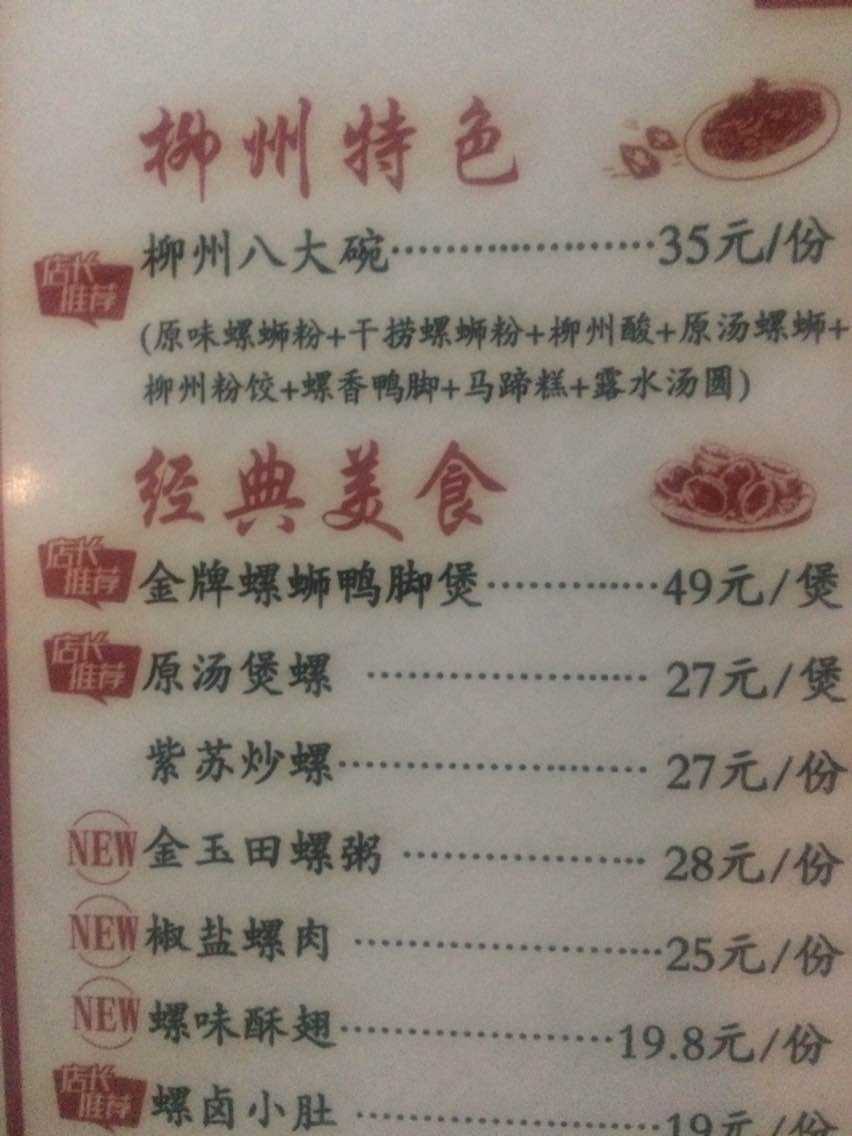 柳州特色
店长推荐 柳州八大碗……………………35元/份
(原味螺蛳粉+干捞螺蛳粉+柳州酸+原汤螺蛳+
柳州粉饺+螺香鸭脚+马蹄糕+露水汤圆)
经典美食
店长推荐 金牌螺蛳鸭脚煲……………49元/煲
店长推荐 原汤煲螺 ……………………… 27元/煲
紫苏炒螺………………………… 27元/份
NEW 金玉田螺粥 …………………… 28元/份
NEW 椒盐螺肉 ………………………25元/份
NEW 螺味酥翅……………………19.8元/份
店长推荐 螺卤小肚 ………………………19元/份